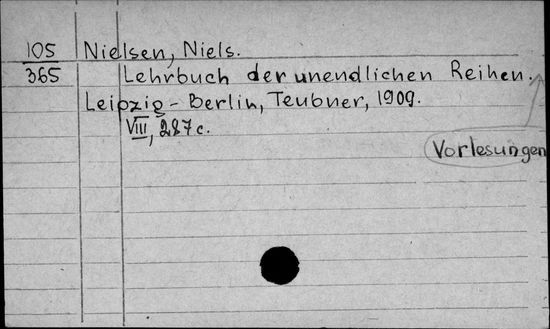 105 Nielsen, Niels.
365 Lehrbuch der unendlichen Reihen.
Leipzig - Berlin, Teubner, 1909.
VIII, 287 c.
Vorlesungen